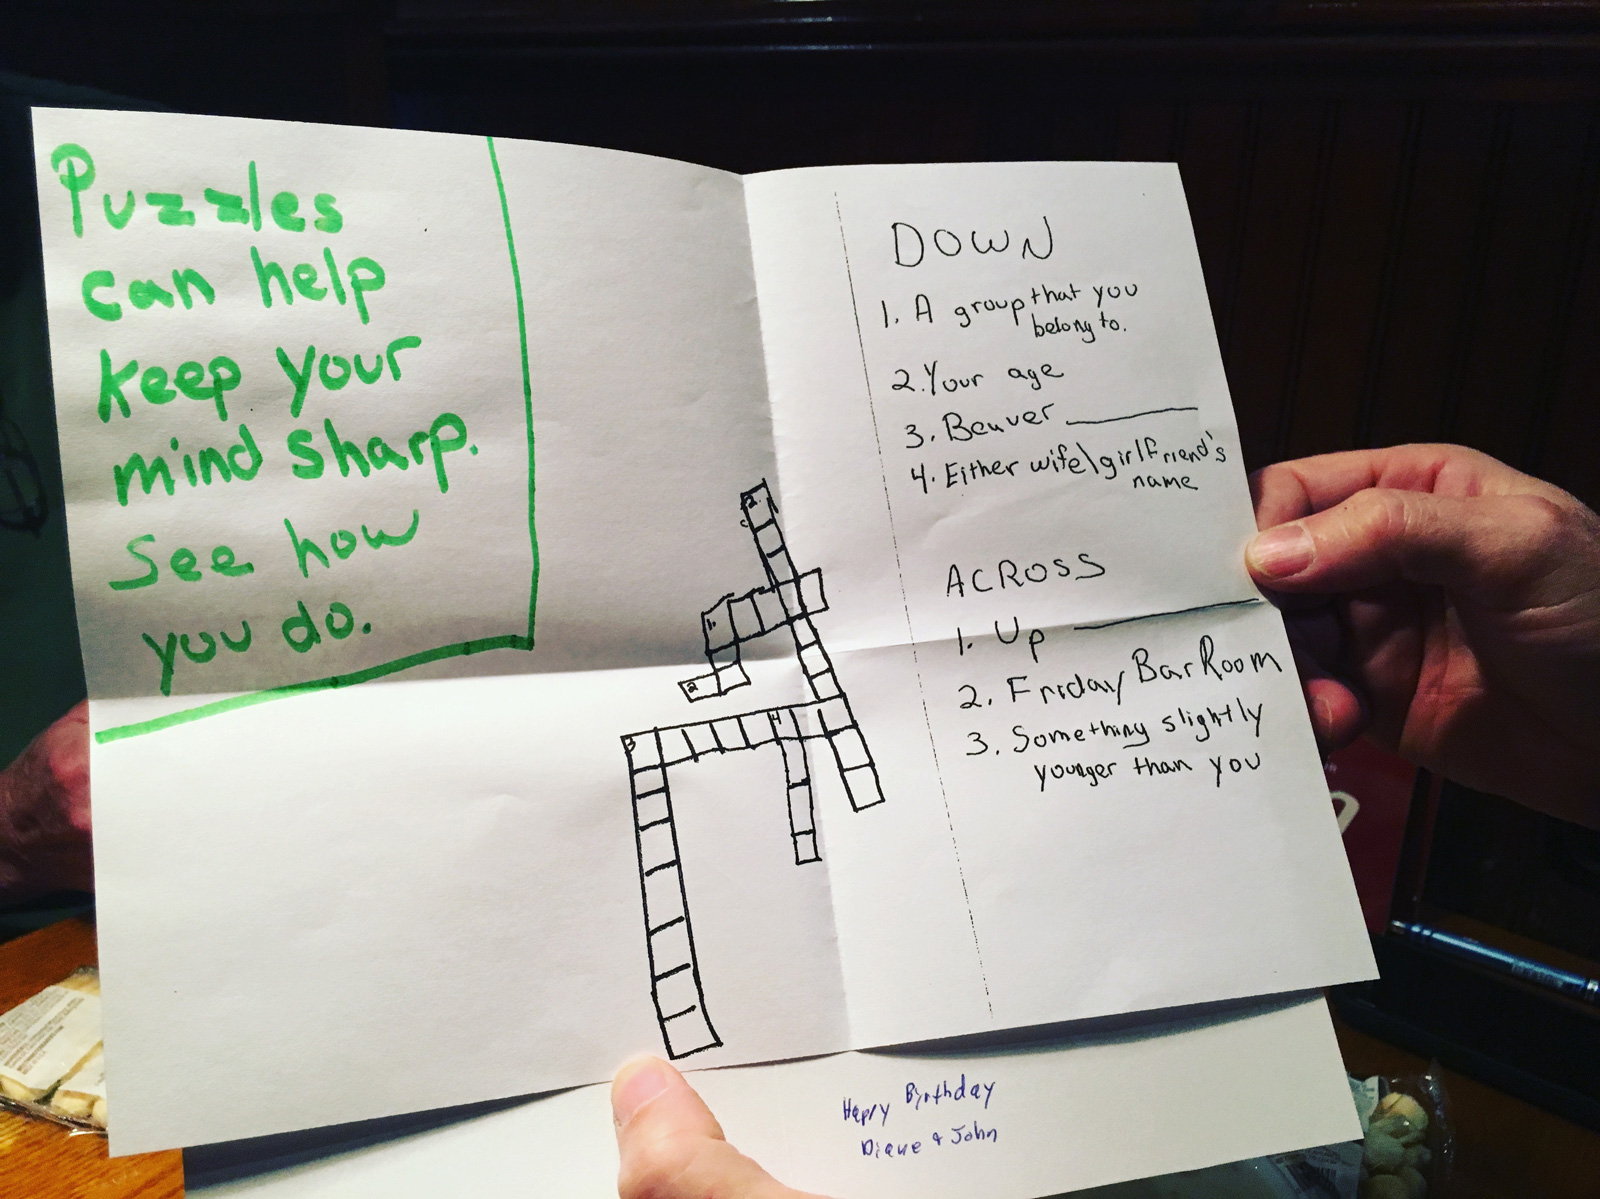 Puzzles
can help
keep your
mind sharp.
See how
you do.
2.
1.
2
3
4
DOWN
1. A group that you
belong to.
2. Your age
3. Beaver
4. Either wife\girlfriend's
name
ACROSS
1. Up
2. Friday Bar Room
3. Something slightly
younger than you
Happy Birthday
Diane & John